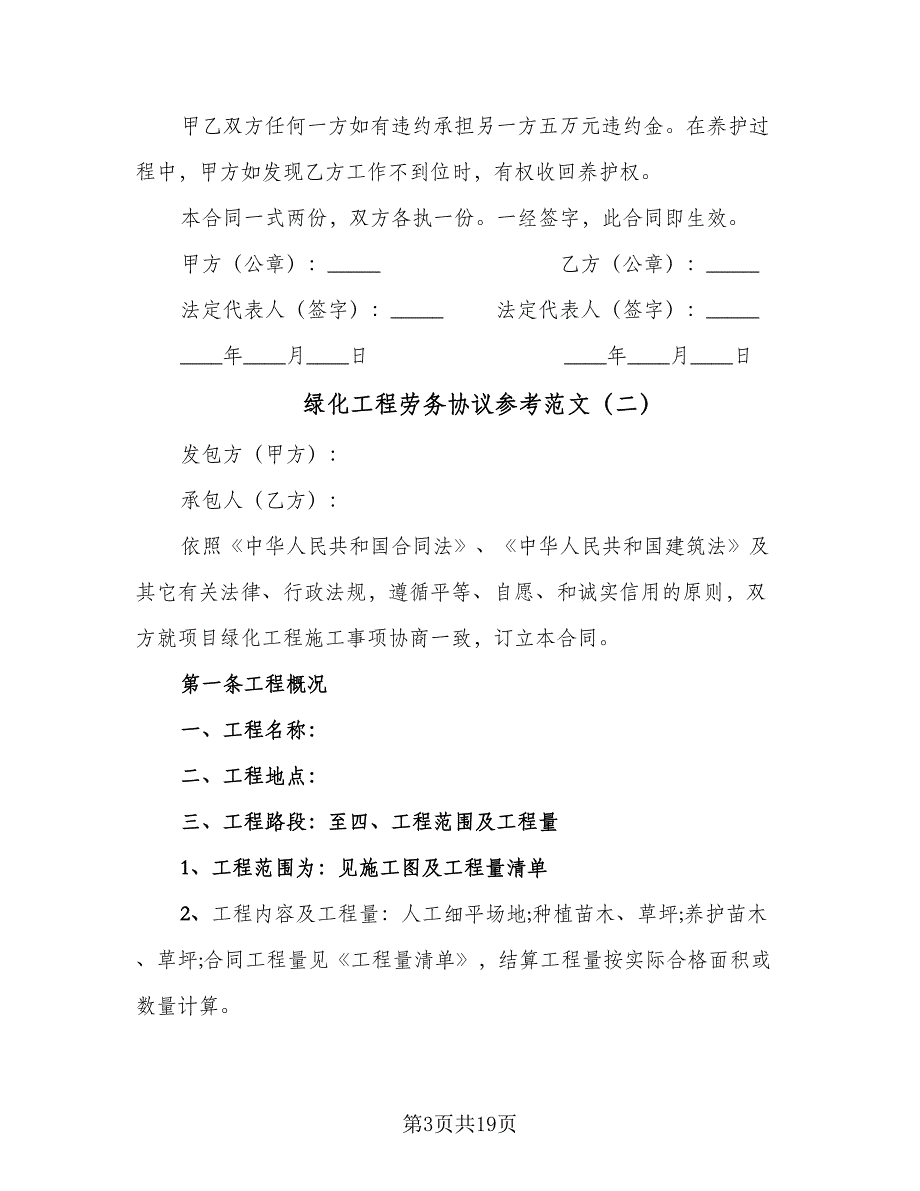 甲乙双方任何一方如有违约承担另一方五万元违约金。在养护过
程中，甲方如发现乙方工作不到位时，有权收回养护权。
本合同一式两份，双方各执一份。一经签字，此合同即生效。
甲方（公章）：_____ 乙方（公章）：_____
法定代表人（签字）：_____ 法定代表人（签字）：_____
____年____月____日 ____年____月____日
绿化工程劳务协议参考范文（二）
发包方（甲方）：
承包人（乙方）：
依照《中华人民共和国合同法》、《中华人民共和国建筑法》及
其它有关法律、行政法规，遵循平等、自愿、和诚实信用的原则，双
方就项目绿化工程施工事项协商一致，订立本合同。
第一条工程概况
一、工程名称：
二、工程地点：
三、工程路段：至四、工程范围及工程量
1、工程范围为：见施工图及工程量清单
2、工程内容及工程量：人工细平场地;种植苗木、草坪;养护苗木
、草坪;合同工程量见《工程量清单》，结算工程量按实际合格面积或
数量计算。
第3页共19页